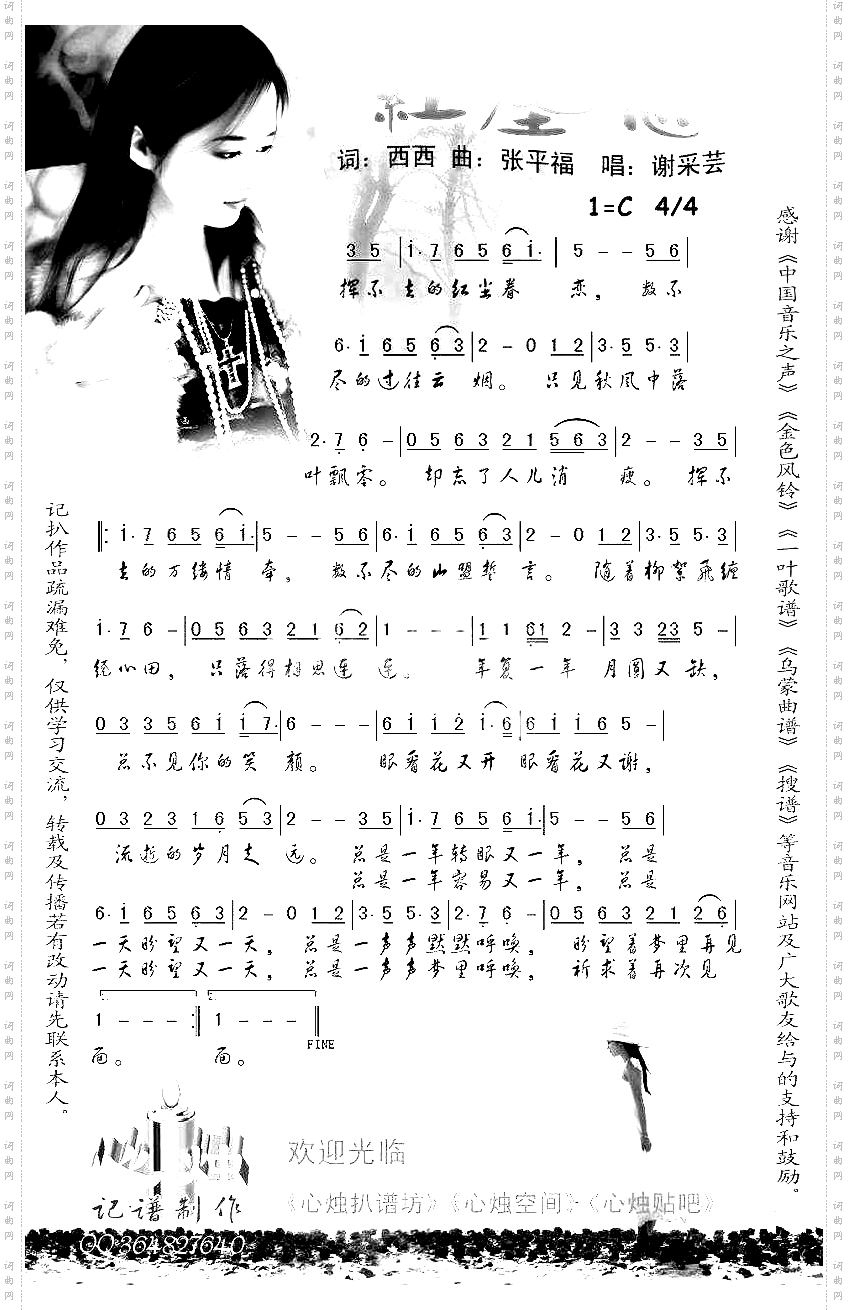 词：西西 曲：张平福 唱：谢采芸
1=C 4/4
3 5 | i· 7 6 5 6 i· | 5 - - 5 6 |
挥不去的红尘眷 恋， 数不
6· i 6 5 6 3 | 2 - 0 1 2 | 3· 5 5· 3 |
尽的过往云 烟。 只见秋风中落
2· 7 6 - | 0 5 6 3 2 1 5 6 3 | 2 - - 3 5 |
叶飘零。 却忘了人儿消 瘦。 挥不
‖: i· 7 6 5 6 i· | 5 - - 5 6 | 6· i 6 5 6 3 | 2 - 0 1 2 | 3· 5 5· 3 |
去的万缕情 牵， 数不尽的山盟誓 言。 随着柳絮飛缠
i· 7 6 - | 0 5 6 3 2 1 6 2 | 1 - - - | 1 1 61 2 - | 3 3 23 5 - |
绕心田， 只落得相思连 连。 年复一年 月圆又缺，
0 3 3 5 6 i i 7· | 6 - - - | 6 i i 2 i· 6 | 6 i i 6 5 - |
总不见你的笑 颜。 眼看花又开 眼看花又谢，
0 3 2 3 1 6 5 3 | 2 - - 3 5 | i· 7 6 5 6 i· | 5 - - 5 6 |
流逝的岁月走 远。 总是一年转眼又一年， 总是
总是一年容易又一年， 总是
6· i 6 5 6 3 | 2 - 0 1 2 | 3· 5 5· 3 | 2· 7 6 - | 0 5 6 3 2 1 2 6 |
一天盼望又一天， 总是一声声默默呼唤， 盼望着梦里再见
一天盼望又一天， 总是一声声梦里呼唤， 祈求着再次见
1 - - - :‖ 1 - - - ‖
FINE
面。 面。
感谢《中国音乐之声》《金色风铃》《一叶歌谱》《乌蒙曲谱》《搜谱》等音乐网站及广大歌友给与的支持和鼓励。
记扒作品疏漏难免，仅供学习交流，转载及传播若有改动请先联系本人。
欢迎光临
记谱制作
《心烛扒谱坊》《心烛空间》·《心烛贴吧》
QQ:364827640
词曲网